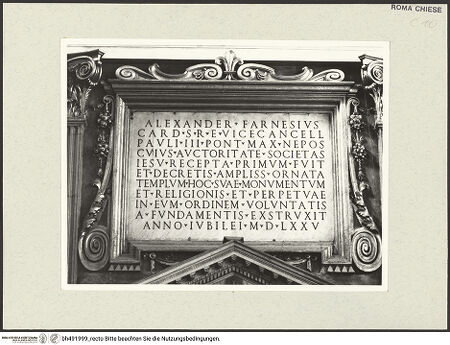 ROMA CHIESE
ALEXANDER · FARNESIVS
CARD · S · R · E · VICECANCELL
PAVLI · III · PONT · MAX · NEPOS
CVIVS · AVCTORITATE · SOCIETAS
IESV · RECEPTA · PRIMVM · FVIT
ET · DECRETIS · AMPLISS · ORNATA
TEMPLVM · HOC · SVAE · MONVMENTVM
ET · RELIGIONIS · ET · PERPETVAE
IN · EVM · ORDINEM · VOLVNTATIS
A · FVNDAMENTIS · EXSTRVXIT
ANNO · IVBILEI · M · D · LXXV
bh491999_recto Bitte beachten Sie die Nutzungsbedingungen.